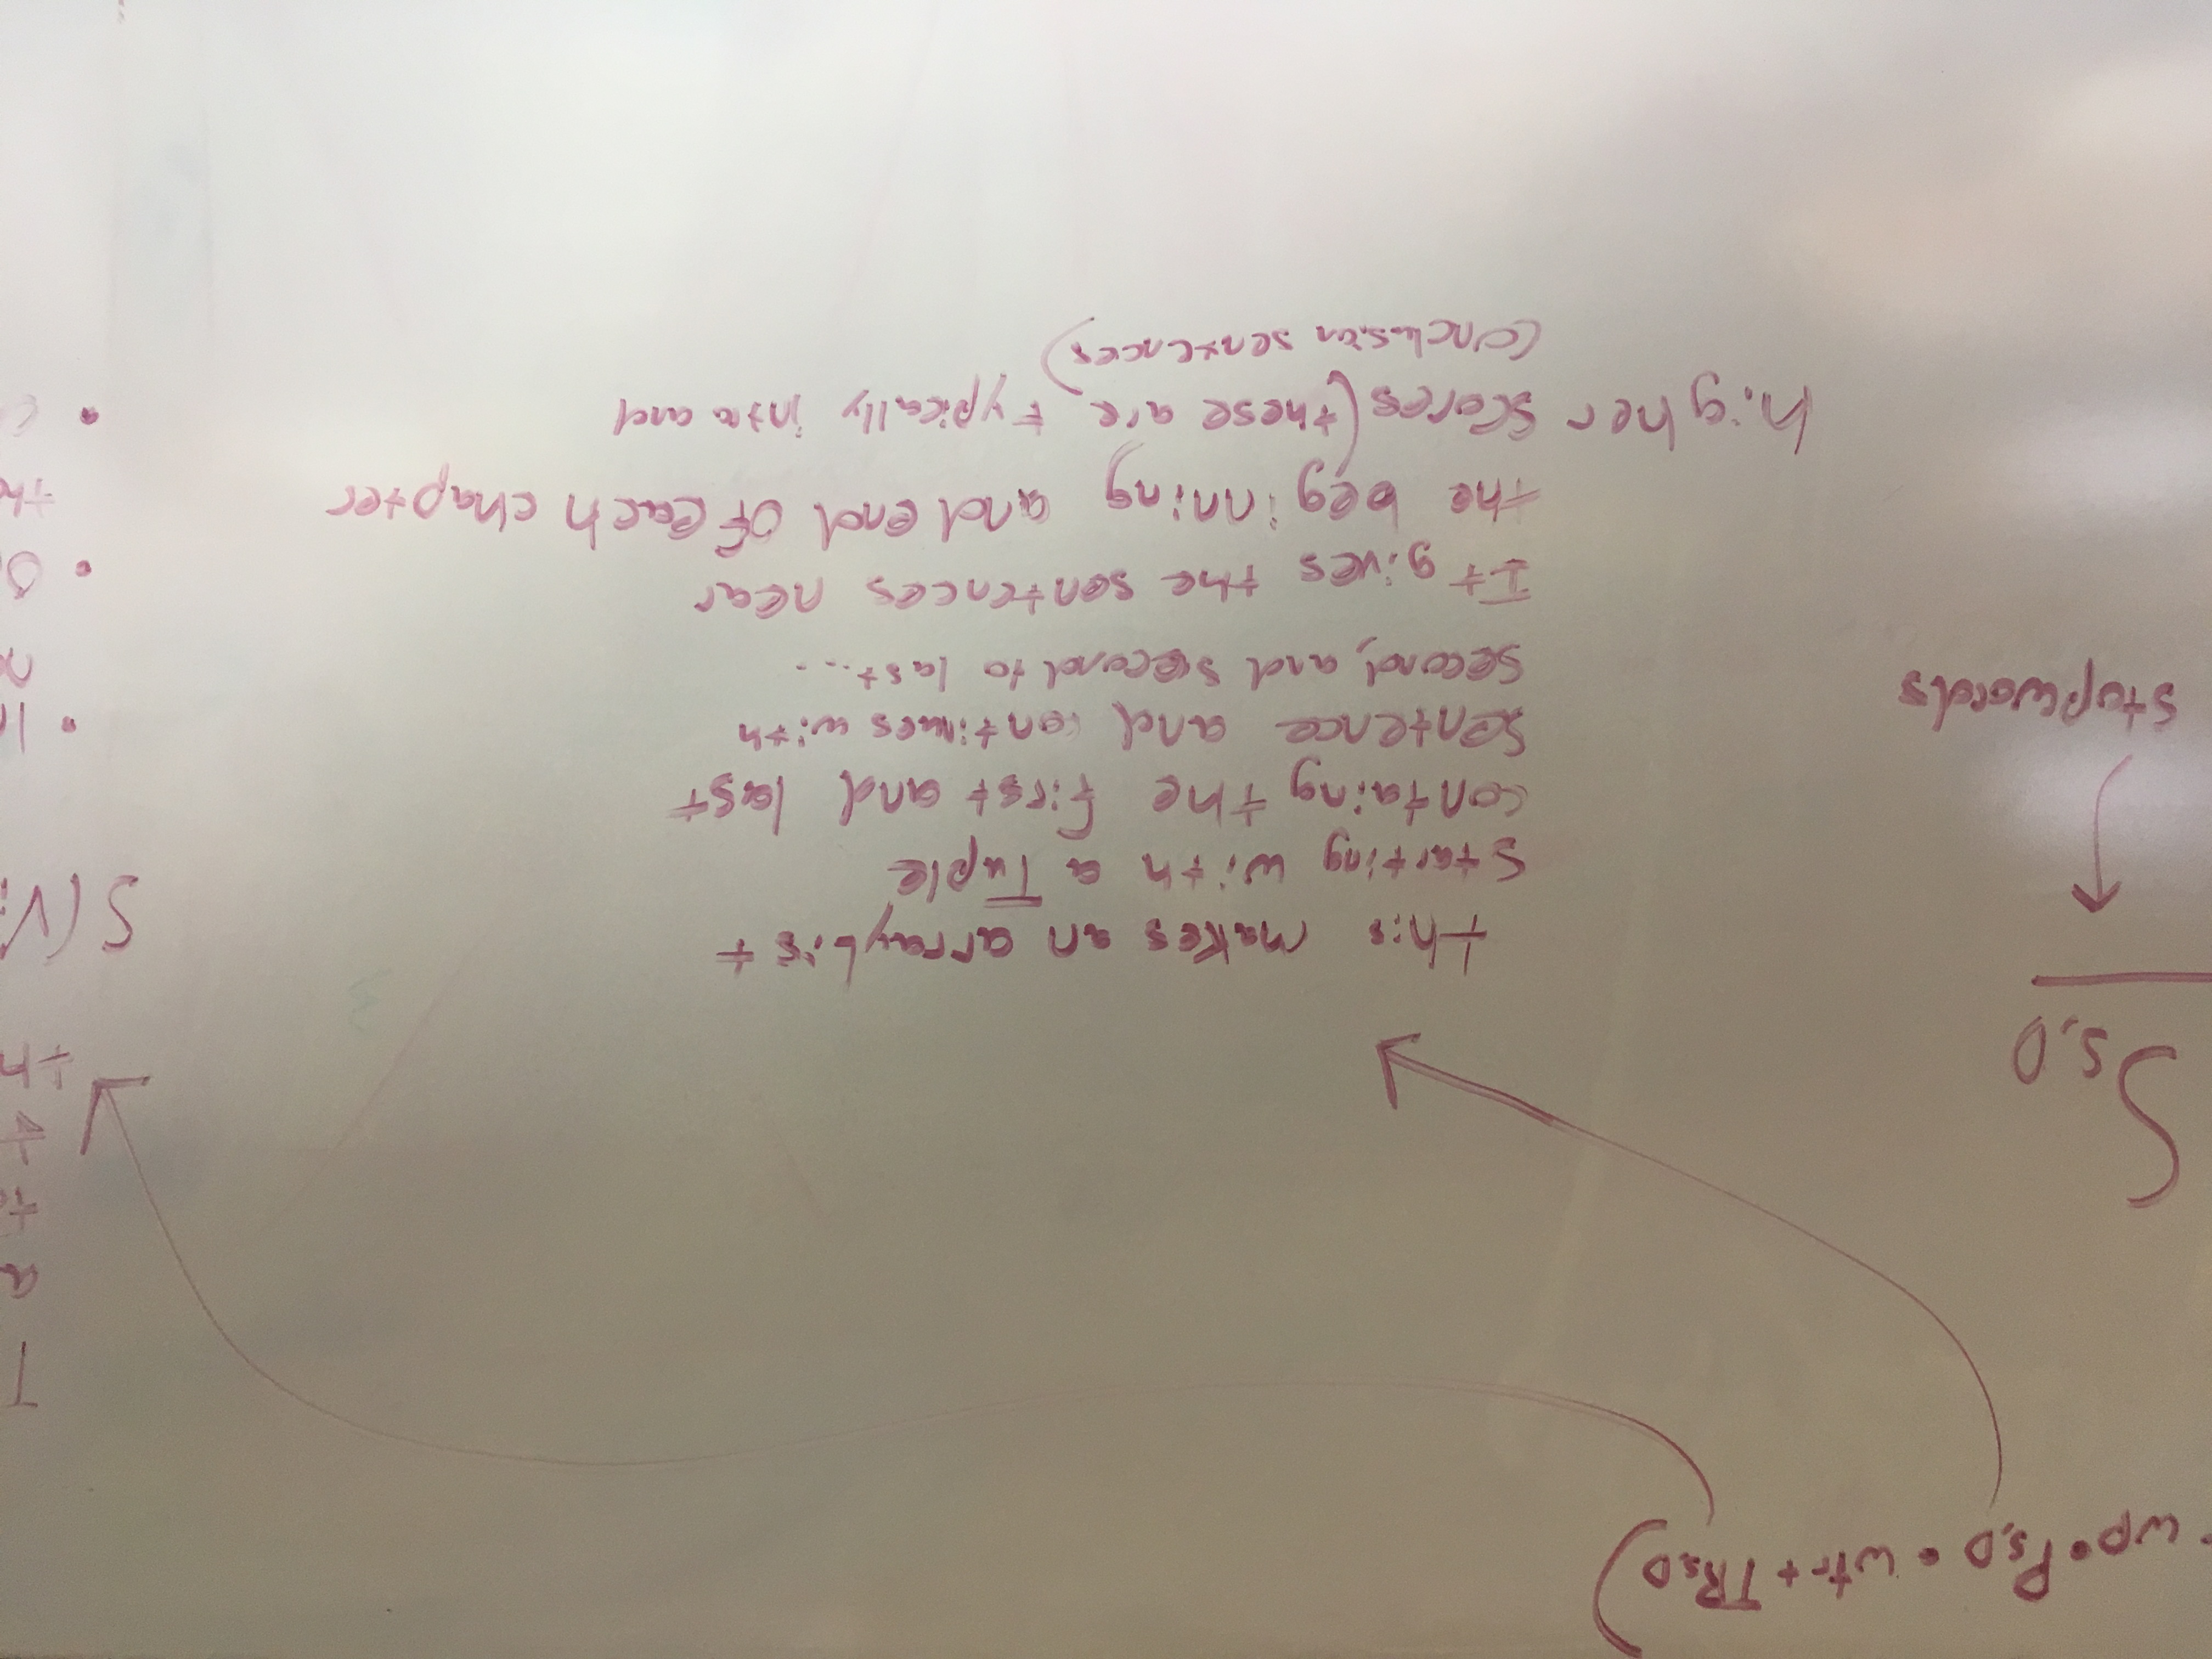 wp • P_S,D • wtr + TR_S,D)
S_S,D
stopwords
this makes an arrayList
starting with a Tuple
containg the first and last
sentence and continues with
second, and second to last...
It gives the sentences near
the beginning and end of each chapter
higher scores (these are typically intro and
conclusion sentences)
T
a
t
th
S(Vi